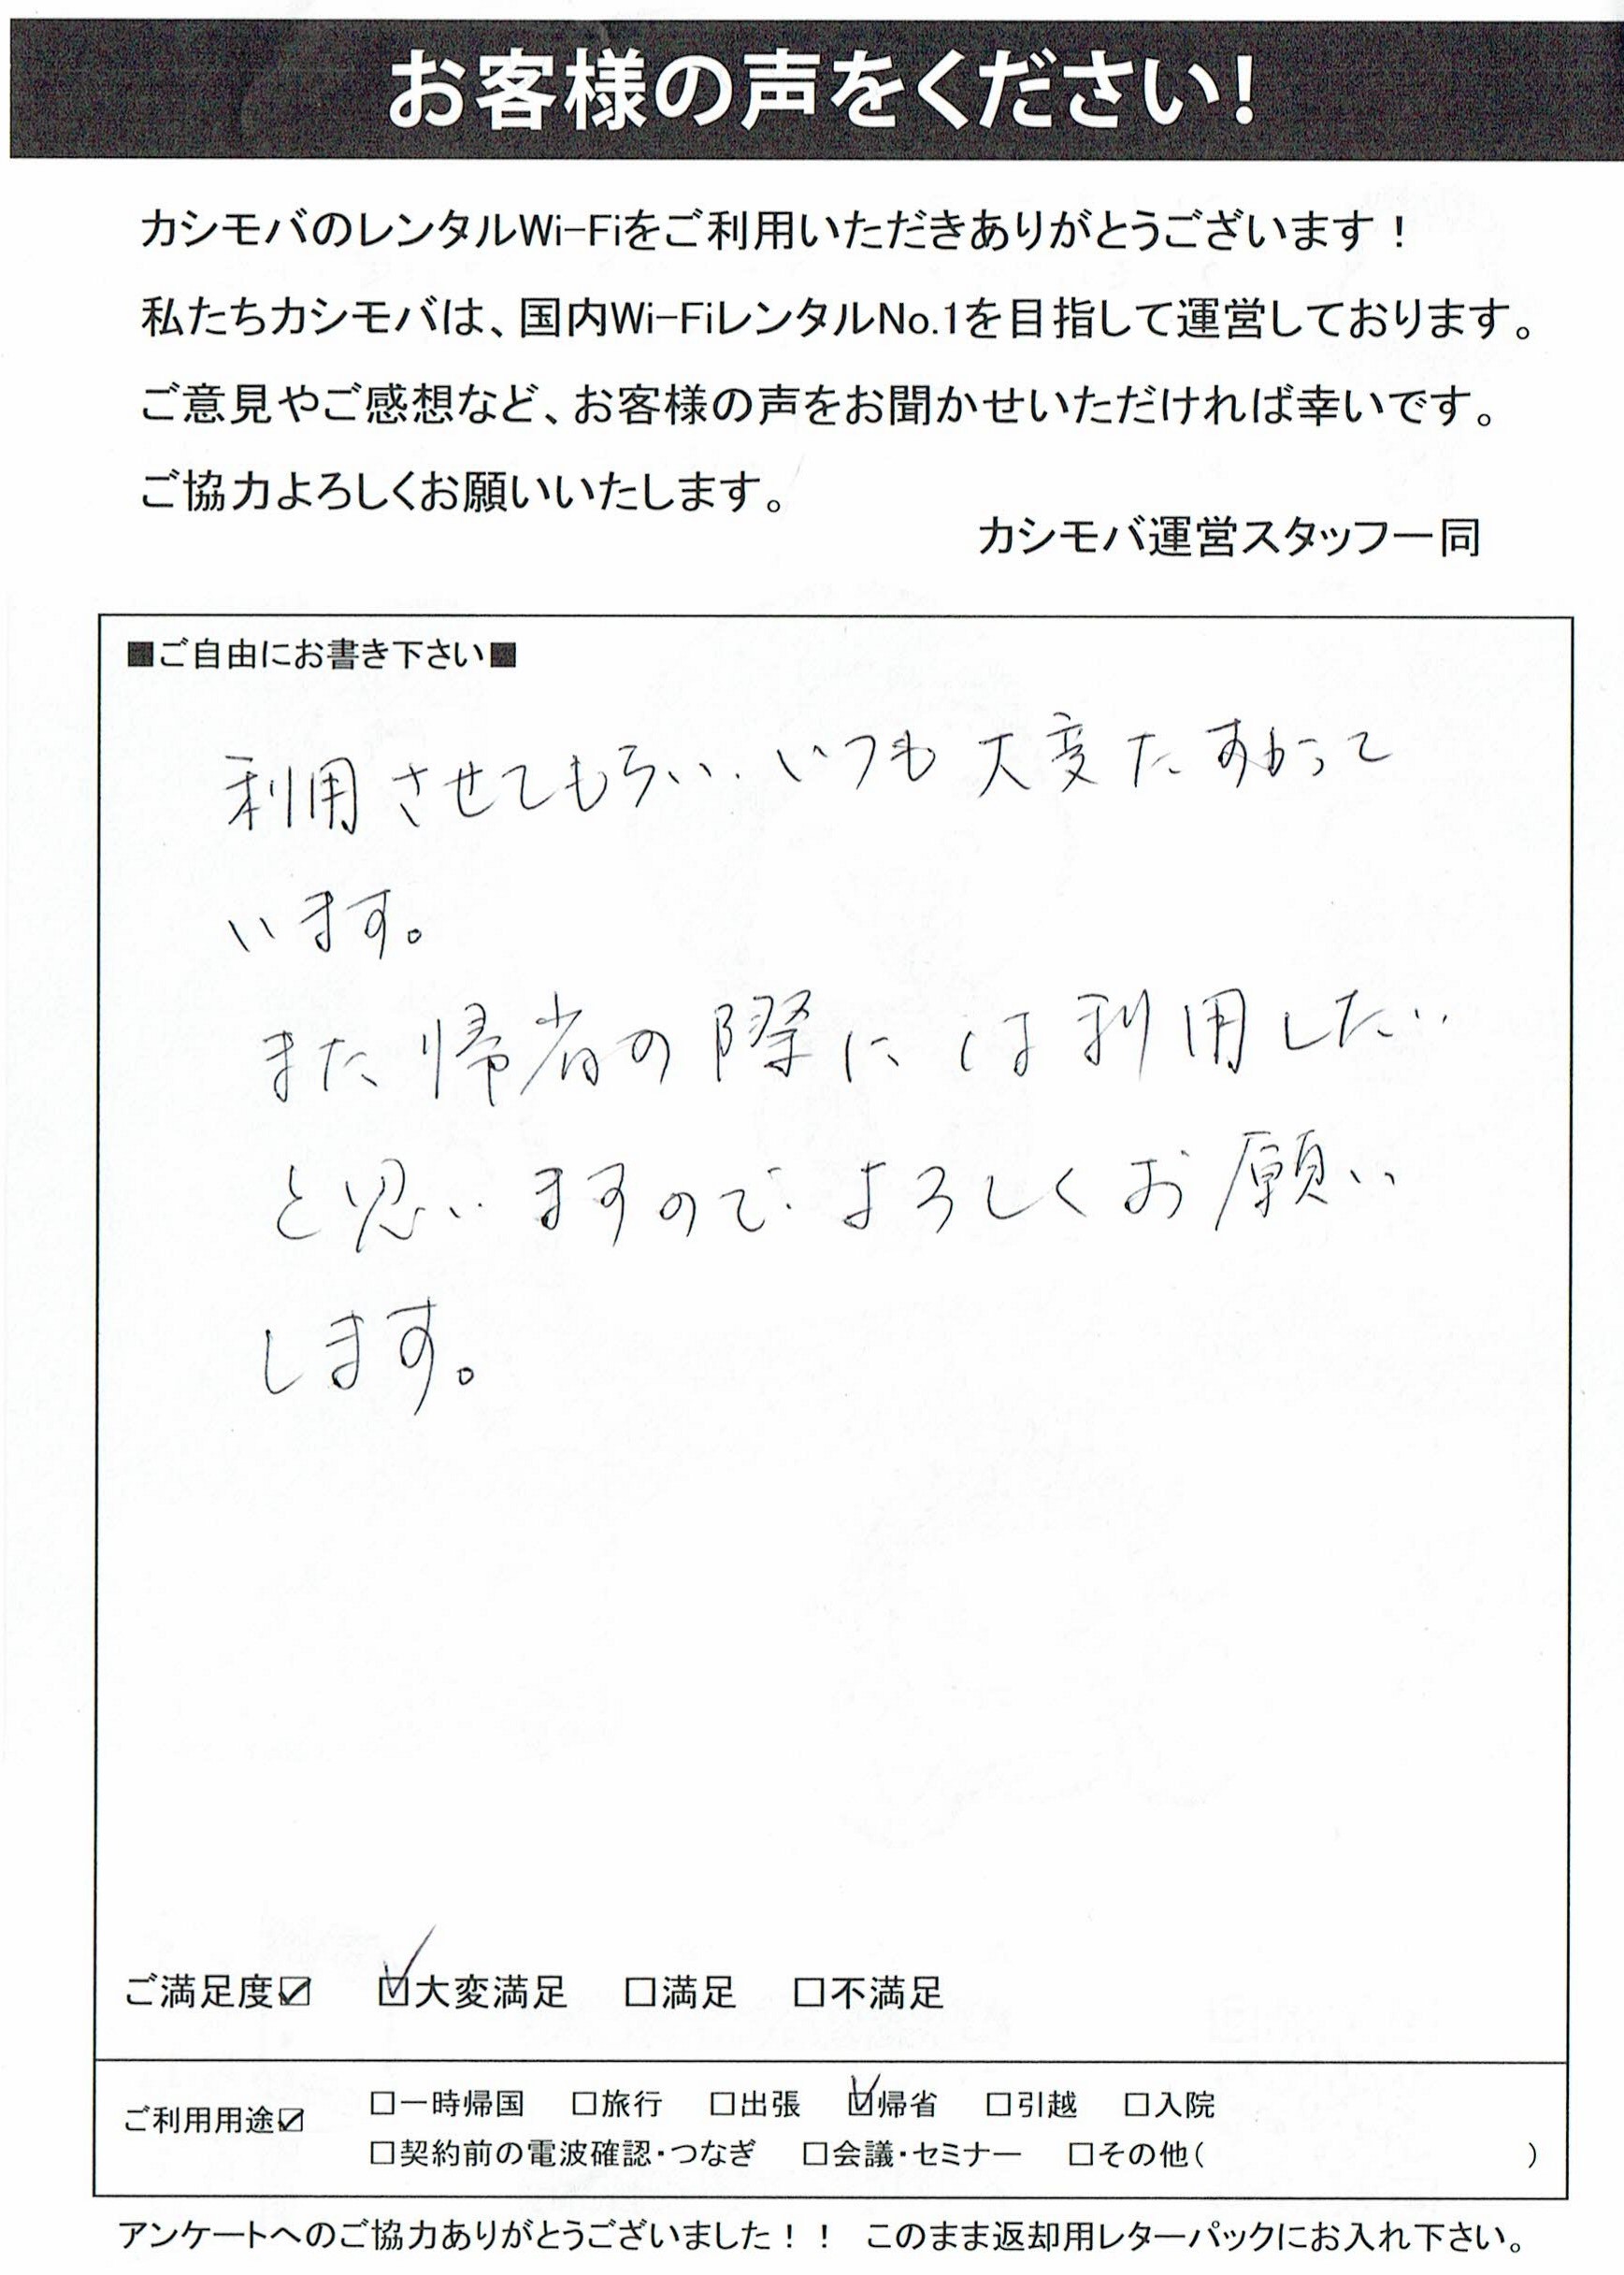 お客様の声をください!
カシモバのレンタルWi-Fiをご利用いただきありがとうございます！
私たちカシモバは、国内Wi-FiレンタルNo.1を目指して運営しております。
ご意見やご感想など、お客様の声をお聞かせいただければ幸いです。
ご協力よろしくお願いいたします。
カシモバ運営スタッフ一同
■ご自由にお書き下さい■
利用させてもらい、いつも大変たすかって
います。
また帰省の際には利用したい
と思いますので、よろしくお願い
します。
ご満足度☑ ☑大変満足 □満足 □不満足
ご利用用途☑ □一時帰国 □旅行 □出張 ☑帰省 □引越 □入院
□契約前の電波確認・つなぎ □会議・セミナー □その他( )
アンケートへのご協力ありがとうございました！！ このまま返却用レターパックにお入れ下さい。